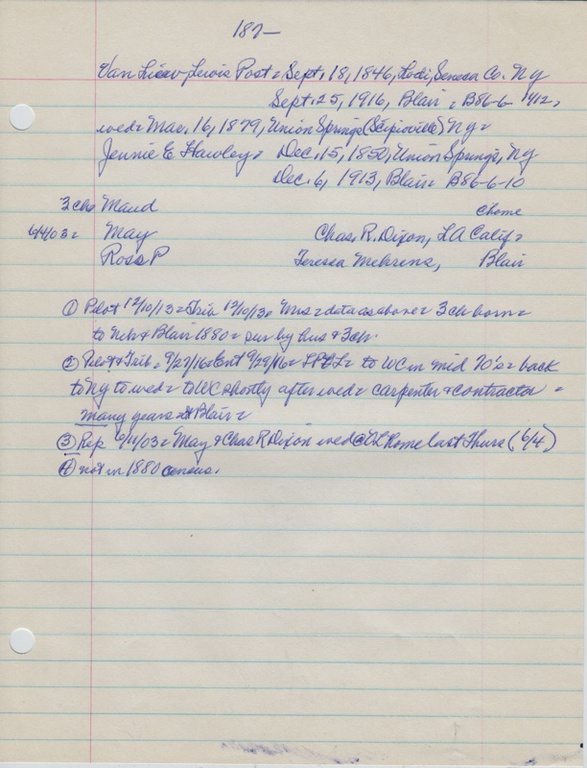 187-
Van Liew, Lewis Post = Sept. 18, 1846, Lodi, Seneca Co. Ny
Sept. 25, 1916, Blair = B86-6-14/12,
wed = Mar. 16, 1879, Union Springs (Scipioville) Ny =
Jennie E Hawley = Dec. 15, 1850, Union Springs, Ny
Dec. 6, 1913, Blair = B86-6-10
3 chs Maud c home
6/4/03 = May Chas. R. Dixon, LA Calif =
Ross P Teresea Mehrens, Blair
① Pilot 12/10/13 = Trib 12/10/13 = Mrs = data as above = 3 ch born =
to Neb & Blair 1880 = sur by hus & 3 ch.
② Pilot & Trib = 9/27/16 = Ent 9/29/16 = LPVL = to WC in mid 70's = back
to Ny to wed = to WC shortly after wed = carpenter & contractor =
many years = Blair =
③ Rep 6/11/03 = May & Chas R Dixon wed @ VL Home last Thurs (6/4)
④ not in 1880 census.